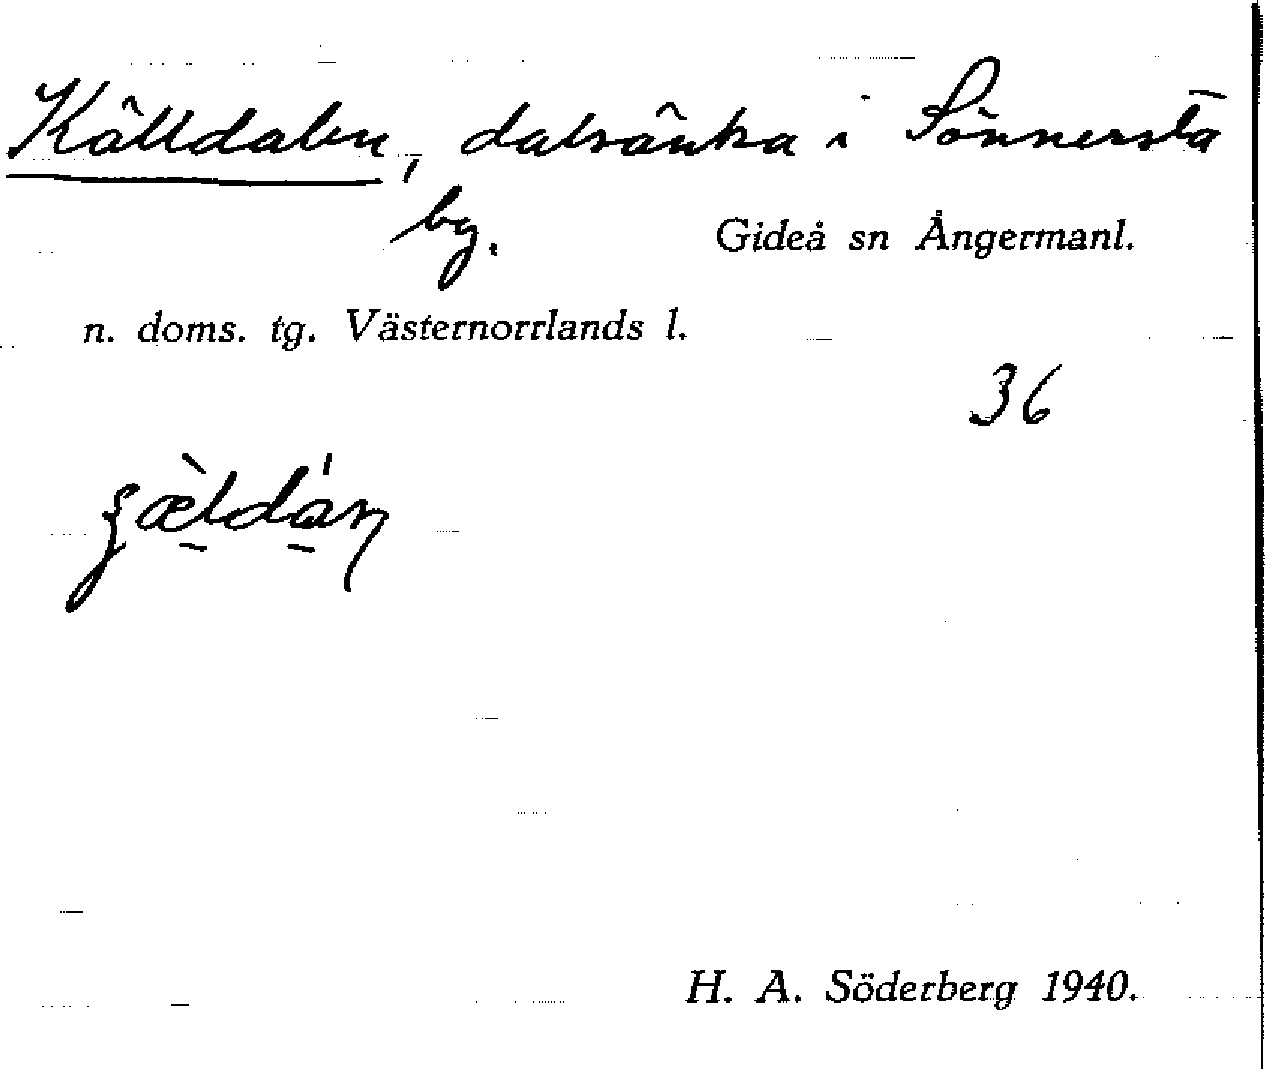 Källdalen, dalsänka i Sönnersta
by.
Gideå sn Ångermanl.
n. doms. tg. Västernorrlands l.
36
H. A. Söderberg 1940.